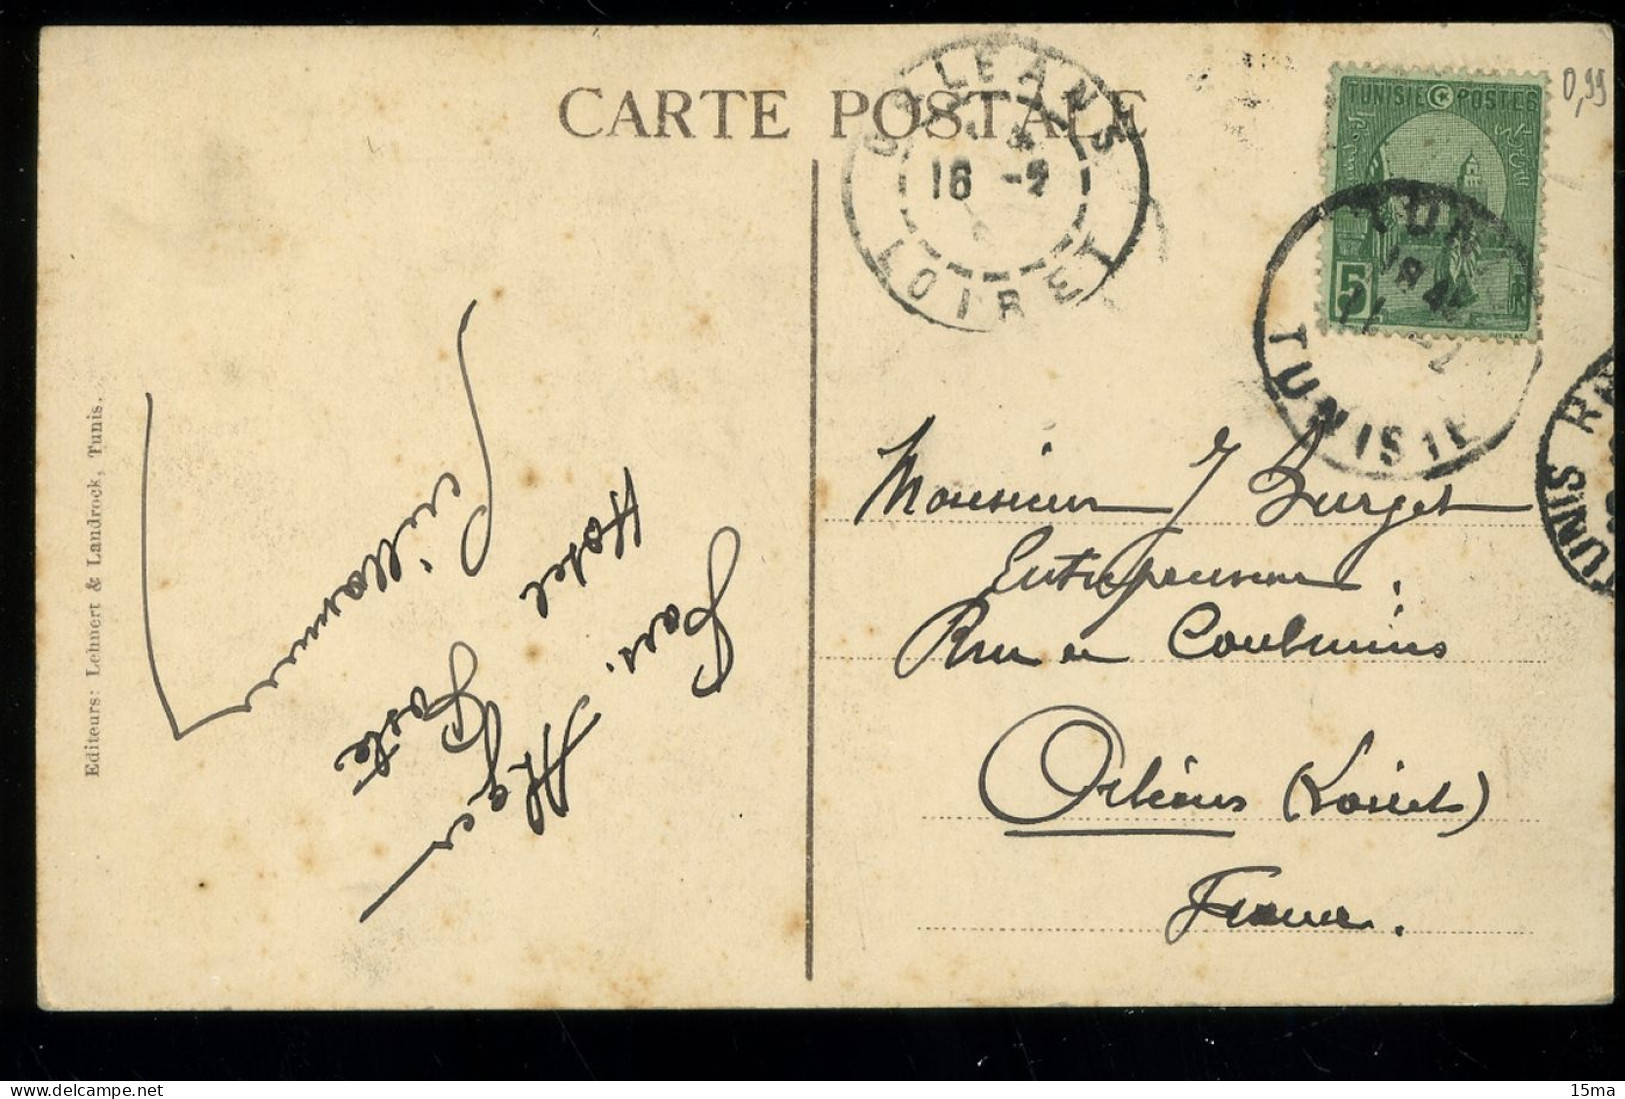 CARTE POSTALE
ORLEANS
16 -2
LOIRET
TUNISIE POSTES
5
TUNIS
TUNISIE
TUNIS R
0,99
Monsieur J Burget
Entrepreneur
Rue de Coulmiers
Orléans (Loiret)
France.
Hotel
Poste
Alger
Editeurs: Lehnert & Landrock, Tunis.
delcampe.net
15ma